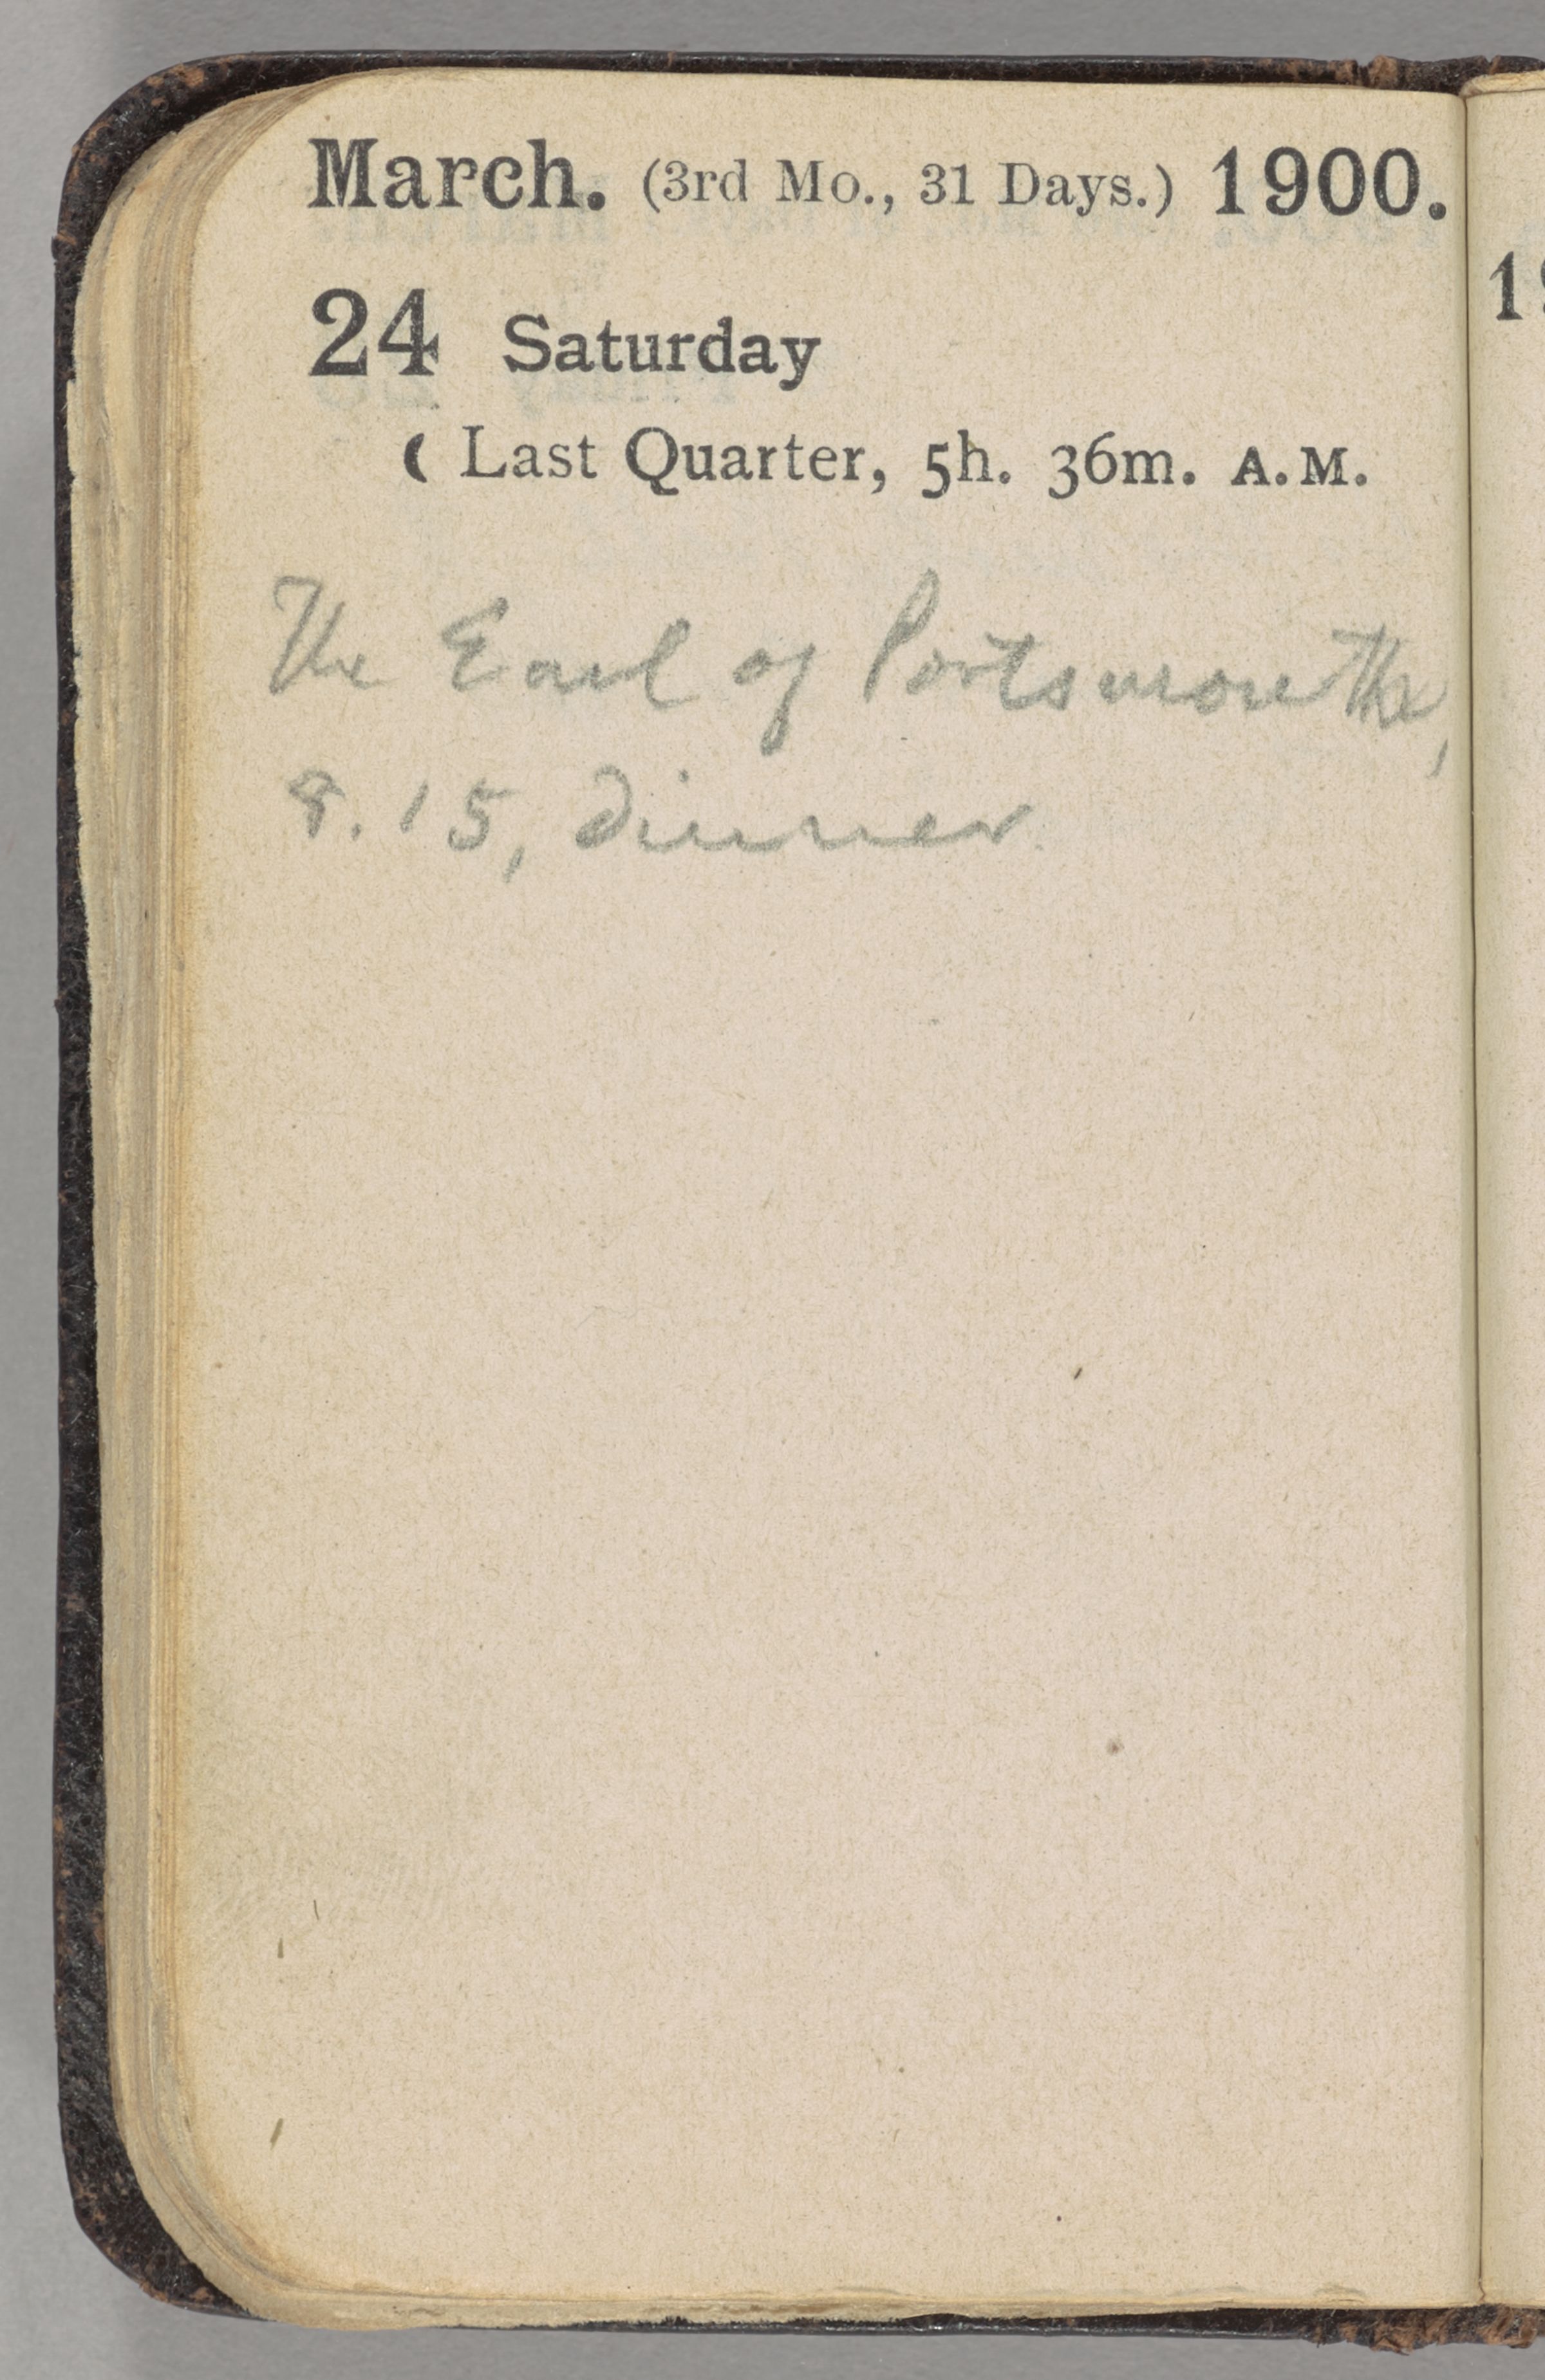 March. (3rd Mo., 31 Days.) 1900.
24 Saturday
☾ Last Quarter, 5h. 36m. A.M.
The Earl of Portsmouth,
8.15, dinner